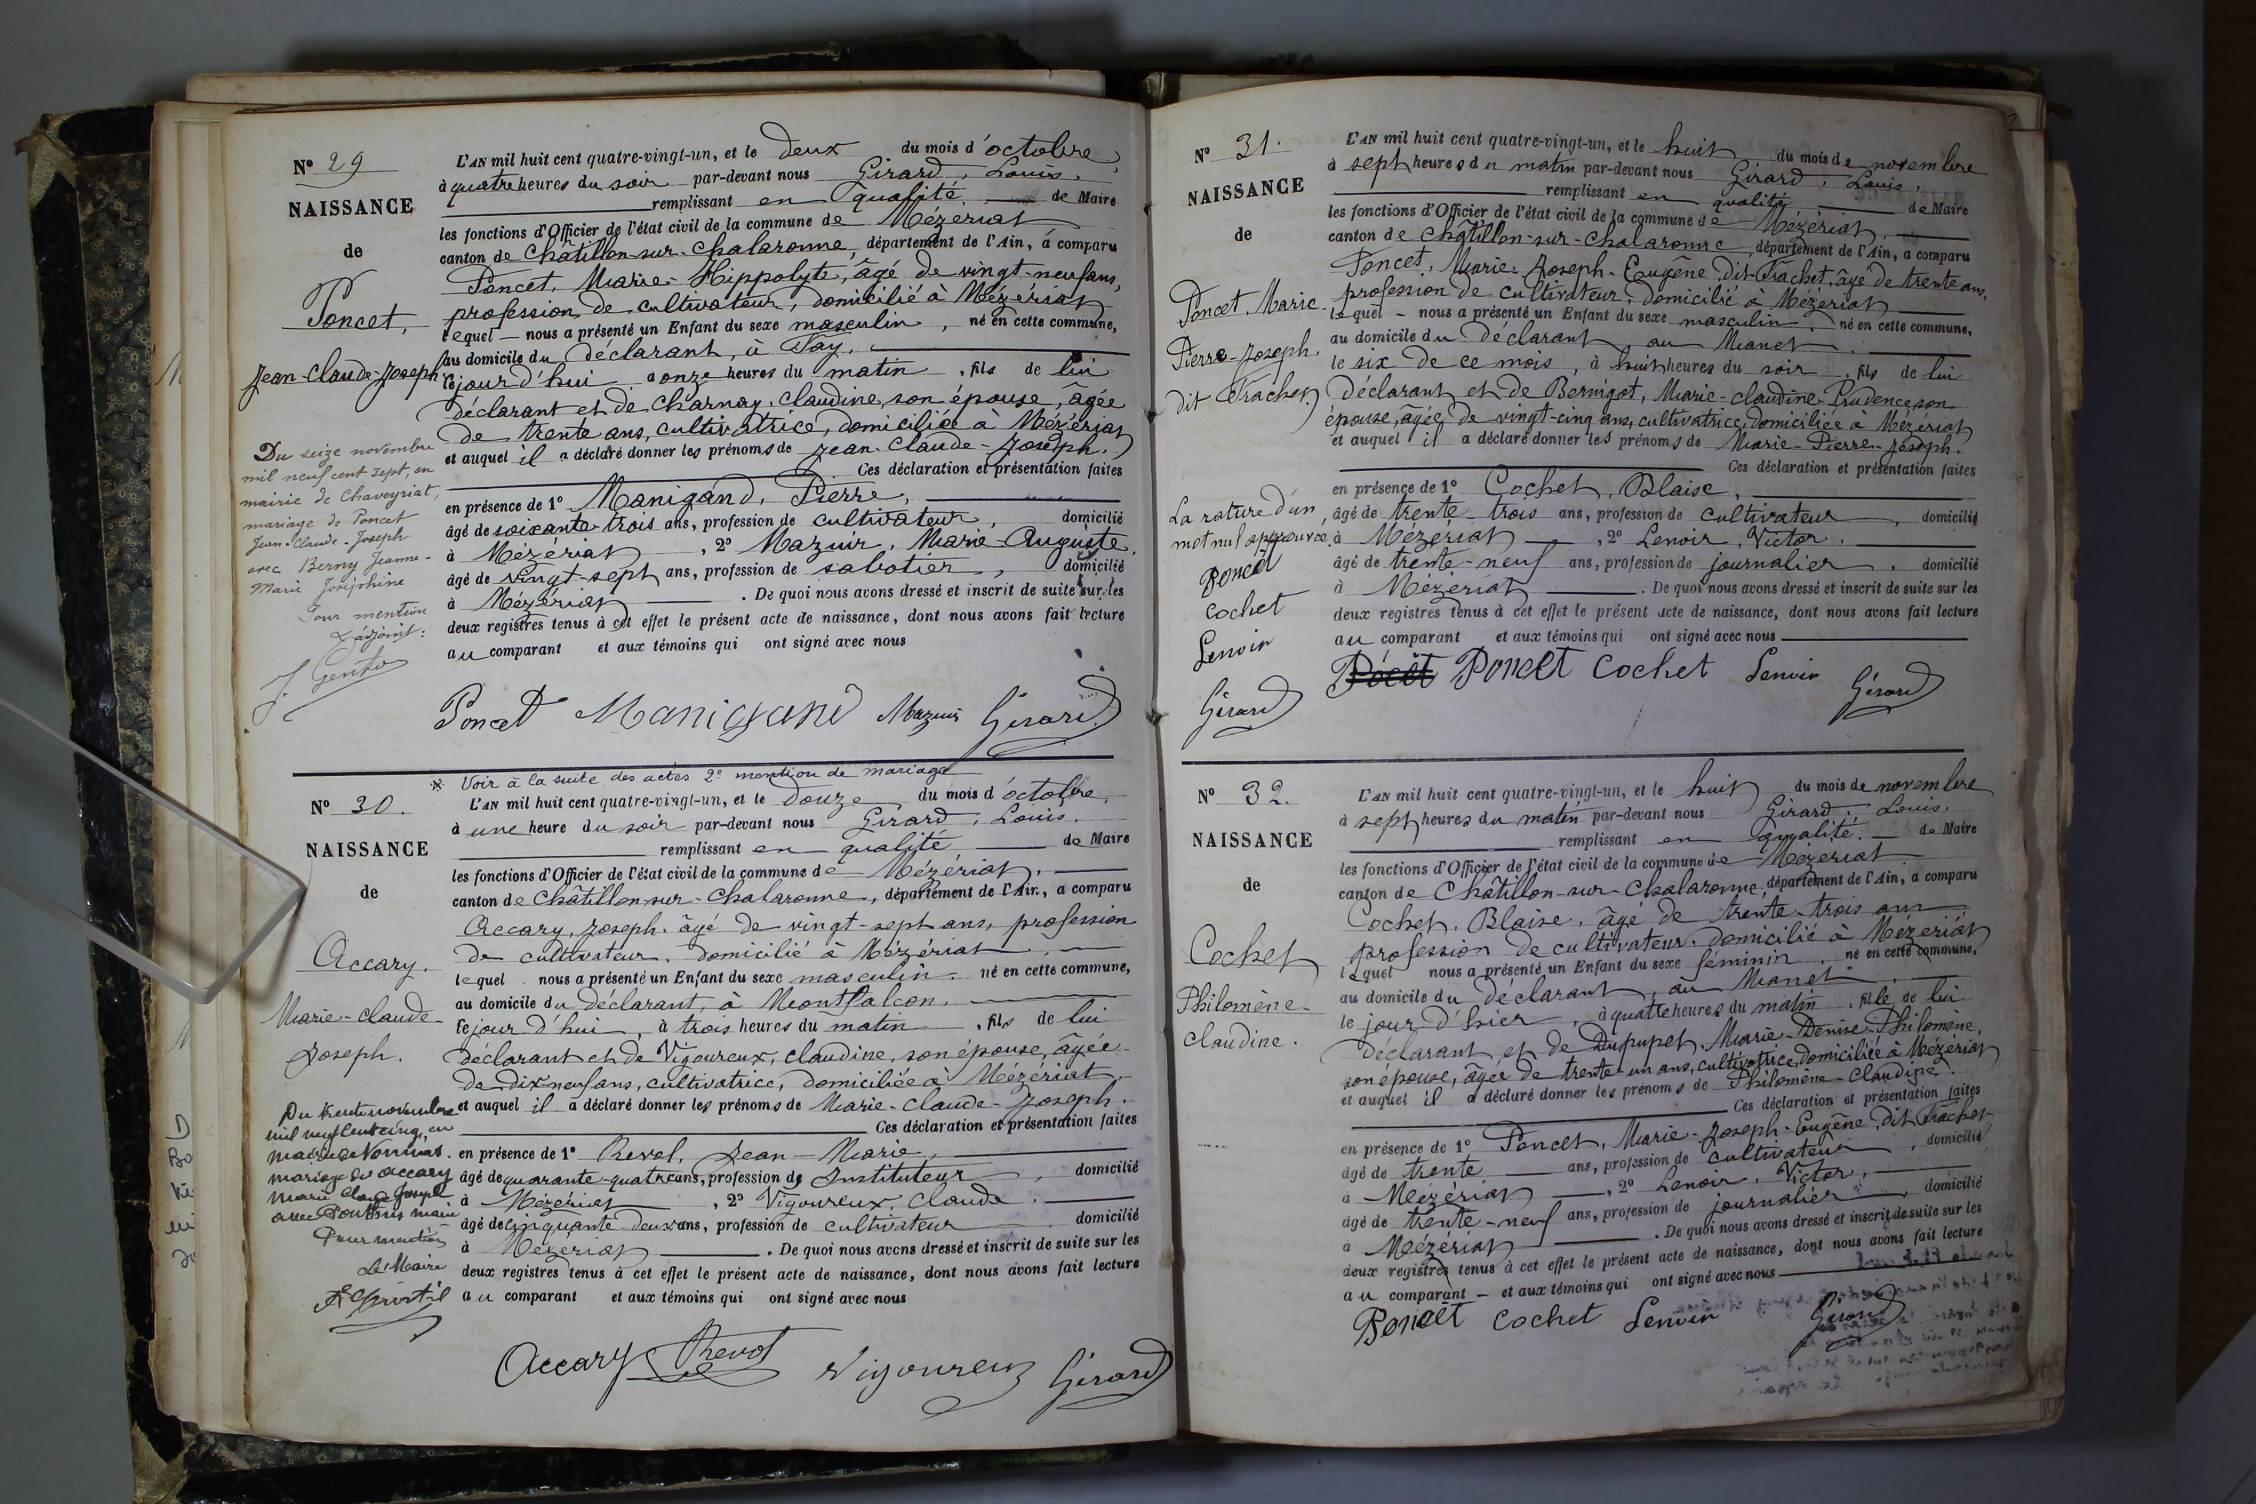 N° 29
NAISSANCE
de
Poncet,
Jean-Claude-Joseph
Du seize novembre
mil neuf cent sept, en
mairie de Chaveyriat,
mariage de Poncet
Jean-Claude-Joseph
avec Berny Jeanne-
Marie Joséphine
Pour mention
L'adjoint:
L'AN mil huit cent quatre-vingt-un, et le deux du mois d'octobre,
à quatre heures du soir par-devant nous Girard, Louis,
remplissant en qualité de Maire
les fonctions d'Officier de l'état civil de la commune de Mézériat
canton de Châtillon-sur-Chalaronne, département de l'Ain, a comparu
Poncet, Marie-Hippolyte, âgé de vingt-neuf ans,
profession de cultivateur, domicilié à Mézériat
lequel nous a présenté un Enfant du sexe masculin, né en cette commune,
au domicile du déclarant, à Fay,
le jour d'hui à onze heures du matin, fils de lui
déclarant et de Charnay, Claudine, son épouse, âgée
de trente ans, cultivatrice, domiciliée à Mézériat
et auquel il a déclaré donner les prénoms de Jean-Claude-Joseph.
Ces déclaration et présentation faites
en présence de 1° Manigand, Pierre,
âgé de soixante-trois ans, profession de cultivateur, domicilié
à Mézériat, 2° Mazuir, Marie-Auguste,
âgé de vingt-sept ans, profession de sabotier, domicilié
à Mézériat. De quoi nous avons dressé et inscrit de suite sur les
deux registres tenus à cet effet le présent acte de naissance, dont nous avons fait lecture
au comparant et aux témoins qui ont signé avec nous
Poncet Manigand Mazuir Girard
※ Voir à la suite des actes 2e mention de mariage
N° 30.
NAISSANCE
de
Accary.
Marie-Claude
Joseph.
Du trente novembre
mil neuf cent cinq, en
mairie de Vonnas.
mariage de Accary
Marie Claude Joseph
avec
Pour mention
Le Maire
L'AN mil huit cent quatre-vingt-un, et le douze du mois d'octobre,
à une heure du soir par-devant nous Girard, Louis,
remplissant en qualité de Maire
les fonctions d'Officier de l'état civil de la commune de Mézériat,
canton de Châtillon-sur-Chalaronne, département de l'Ain, a comparu
Accary, Joseph, âgé de vingt-sept ans, profession
de cultivateur, domicilié à Mézériat
lequel nous a présenté un Enfant du sexe masculin, né en cette commune,
au domicile du déclarant, à Montfalcon,
le jour d'hui, à trois heures du matin, fils de lui
déclarant et de Vigoureux, Claudine, son épouse, âgée
de dix neuf ans, cultivatrice, domiciliée à Mézériat,
et auquel il a déclaré donner les prénoms de Marie-Claude-Joseph.
Ces déclaration et présentation faites
en présence de 1° Revol, Jean-Marie,
âgé de quarante-quatre ans, profession de Instituteur, domicilié
à Mézériat, 2° Vigoureux, Claude.
âgé de cinquante deux ans, profession de cultivateur domicilié
à Mézériat. De quoi nous avons dressé et inscrit de suite sur les
deux registres tenus à cet effet le présent acte de naissance, dont nous avons fait lecture
au comparant et aux témoins qui ont signé avec nous
Accary Revol Vigoureux Girard
N° 31.
NAISSANCE
de
Poncet, Marie-
Pierre-Joseph.
dit Trachet
La rature d'un
mot nul approuvée
Poncet
Cochet
Lenoir
Girard
L'AN mil huit cent quatre-vingt-un, et le huit du mois de novembre
à sept heures du matin par-devant nous Girard, Louis,
remplissant en qualité de Maire
les fonctions d'Officier de l'état civil de la commune de Mézériat,
canton de Châtillon-sur-Chalaronne, département de l'Ain, a comparu
Poncet, Marie-Joseph-Eugène, dit Trachet, âgé de trente ans,
profession de cultivateur, domicilié à Mézériat
lequel nous a présenté un Enfant du sexe masculin, né en cette commune,
au domicile du déclarant, au Manet
le six de ce mois, à huit heures du soir, fils de lui
déclarant et de Bernigot, Marie-Claudine-Prudence son
épouse, âgée de vingt-cinq ans, cultivatrice, domiciliée à Mézériat
et auquel il a déclaré donner les prénoms de Marie-Pierre-Joseph.
Ces déclaration et présentation faites
en présence de 1° Cochet, Blaise,
âgé de trente-trois ans, profession de cultivateur, domicilié
à Mézériat, 2° Lenoir, Victor.
âgé de trente-neuf ans, profession de journalier, domicilié
à Mézériat. De quoi nous avons dressé et inscrit de suite sur les
deux registres tenus à cet effet le présent acte de naissance, dont nous avons fait lecture
au comparant et aux témoins qui ont signé avec nous
Poncet Cochet Lenoir Girard
N° 32.
NAISSANCE
de
Cochet
Philomène-
Claudine.
L'AN mil huit cent quatre-vingt-un, et le huit du mois de novembre
à sept heures du matin par-devant nous Girard, Louis.
remplissant en qualité. de Maire
les fonctions d'Officier de l'état civil de la commune de Mézériat
canton de Châtillon-sur-Chalaronne, département de l'Ain, a comparu
Cochet, Blaise, âgé de trente-trois ans
profession de cultivateur, domicilié à Mézériat
lequel nous a présenté un Enfant du sexe féminin, né en cette commune,
au domicile du déclarant, au Manet
le jour d'hier, à quatre heures du matin, fille de lui
déclarant et de Dupupet, Marie-Denise-Philomène,
son épouse, âgée de trente-un ans, cultivatrice, domiciliée à Mézériat
et auquel il a déclaré donner les prénoms de Philomène-Claudine.
Ces déclaration et présentation faites
en présence de 1° Poncet, Marie-Joseph-Eugène, dit Trachet
âgé de trente ans, profession de cultivateur, domicilié
à Mézériat, 2° Lenoir, Victor,
âgé de trente-neuf ans, profession de journalier, domicilié
à Mézériat. De quoi nous avons dressé et inscrit de suite sur les
deux registres tenus à cet effet le présent acte de naissance, dont nous avons fait lecture
au comparant et aux témoins qui ont signé avec nous
Poncet Cochet Lenoir Girard